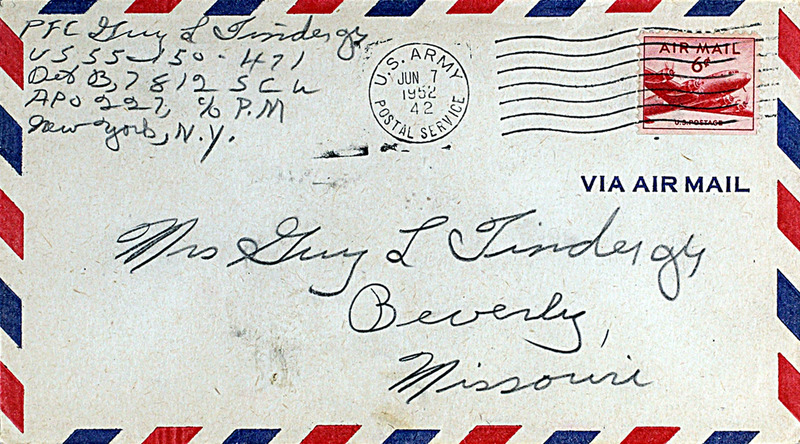 PFC Guy L Tindergs
US 55-150-471
Det B, 7812 S C U
APO 227, % P.M
New York, N.Y.
U.S. ARMY
JUN 7
1952
42
POSTAL SERVICE
AIR MAIL
6¢
U.S. POSTAGE
VIA AIR MAIL
Mrs Guy L Tindergs
Beverly,
Missouri